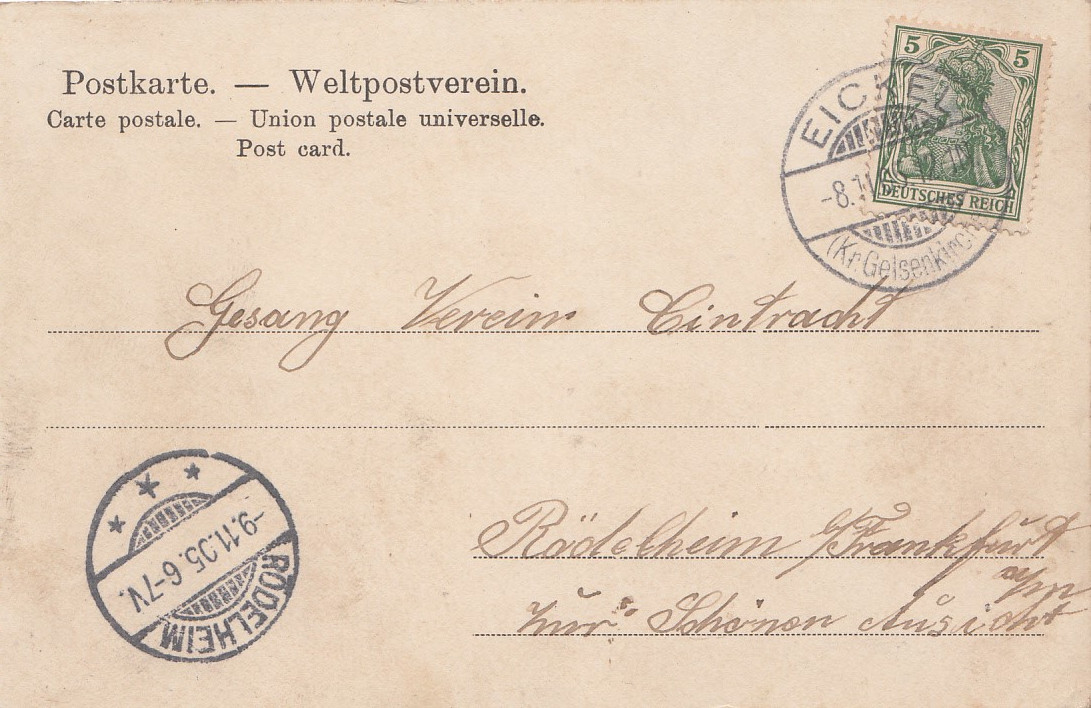 Postkarte. — Weltpostverein.
Carte postale. — Union postale universelle.
Post card.
5 5
DEUTSCHES REICH
EICKEL
-8.11
(Kr. Gelsenkirch
Gesang Verein Eintracht
-9.11.05.6-7V.
RÖDELHEIM
Rödelheim b/Frankfurt
a/m
zur Schönen Aussicht